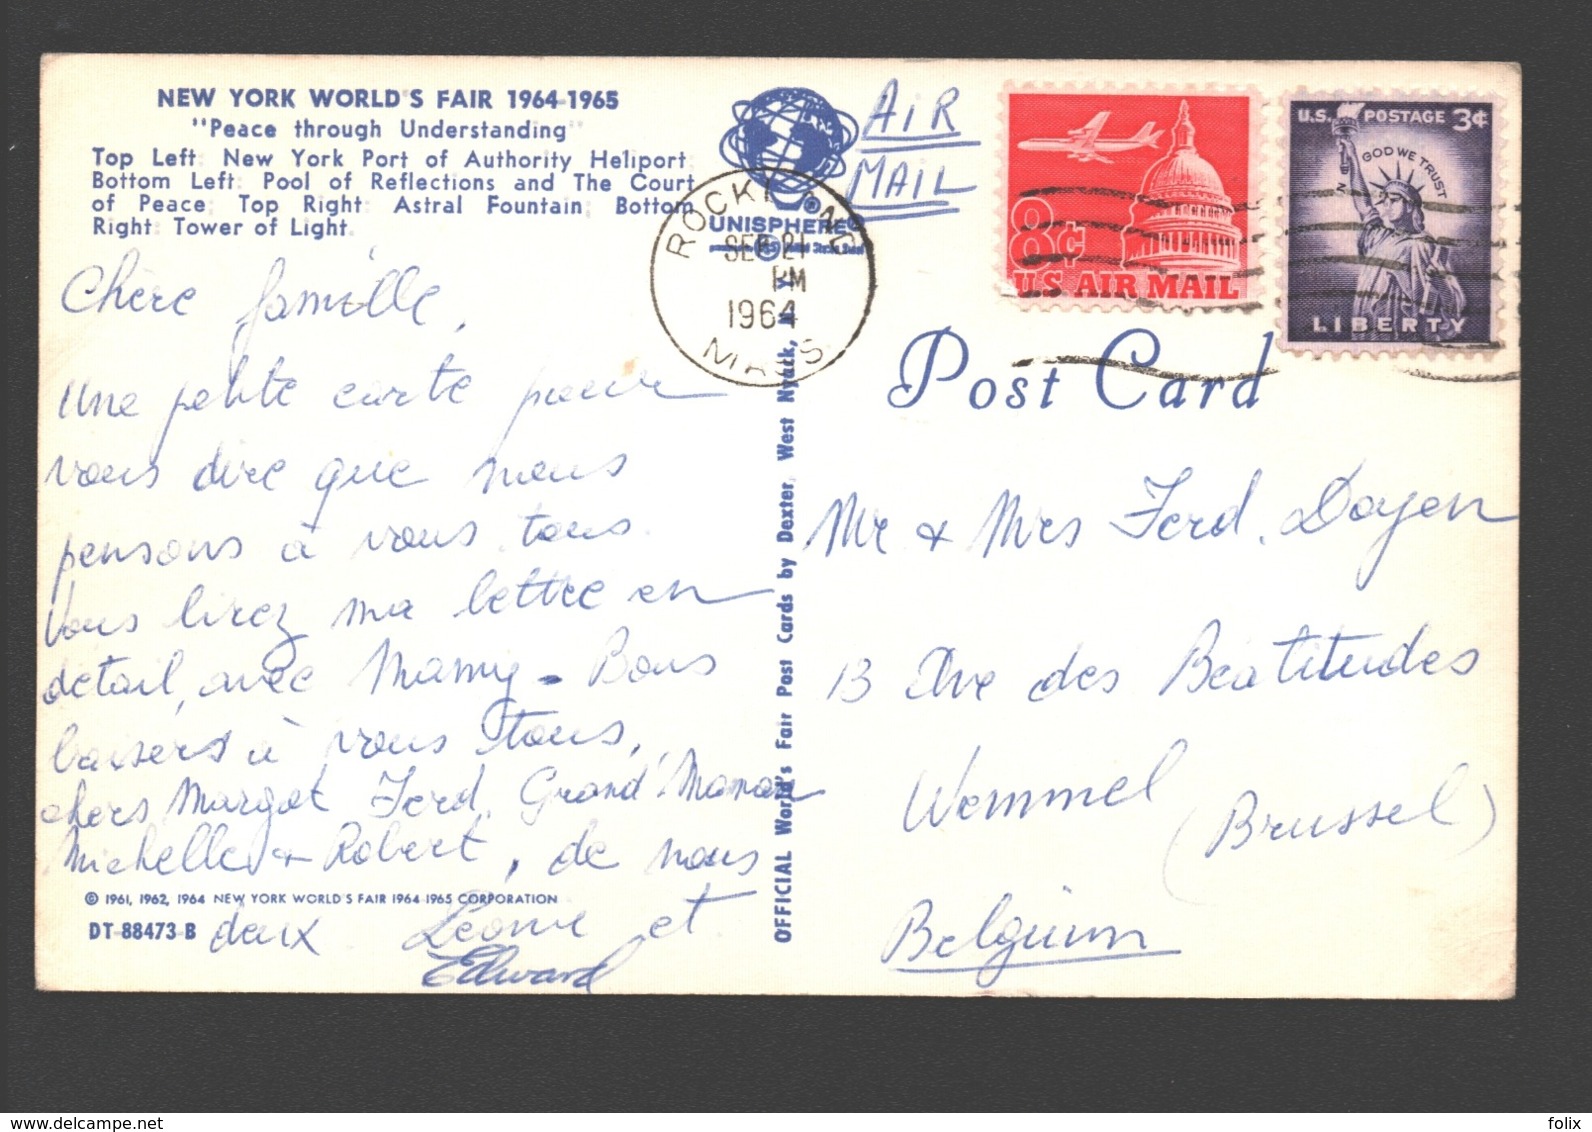 NEW YORK WORLD'S FAIR 1964-1965
"Peace through Understanding"
Top Left: New York Port of Authority Heliport;
Bottom Left: Pool of Reflections and The Court
of Peace; Top Right: Astral Fountain; Bottom
Right: Tower of Light.
UNISPHERE®
AiR
MAIL
SEP 21
PM
1964
MASS
8¢
U.S. AIR MAIL
U.S. POSTAGE 3¢
IN GOD WE TRUST
LIBERTY
Post Card
Chère famille,
Une petite carte pour
vous dire que nous
pensons à vous tous.
Vous lirez ma lettre en
détail, avec Mamy - Bons
baisers à vous tous,
chers Margot Ferd. Grand'Maman
Michelle & Robert, de nous
© 1961, 1962, 1964 NEW YORK WORLD'S FAIR 1964-1965 CORPORATION
DT-88473-B
deux Léonie et
Edward
OFFICIAL World's Fair Post Cards by Dexter, West Nyack, N.Y.
Mr & Mrs Ferd. Doyen
13 Ave des Béatitudes
Wemmel
(Brussel)
Belgium
felix